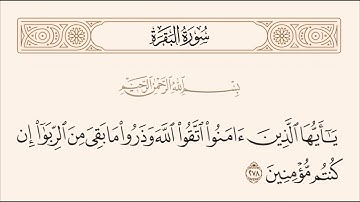 سُورَةُ البَقَرَةِ
بِسْمِ اللَّهِ الرَّحْمَٰنِ الرَّحِيمِ
يَـٰٓأَيُّهَا ٱلَّذِينَ ءَامَنُوا۟ ٱتَّقُوا۟ ٱللَّهَ وَذَرُوا۟ مَا بَقِىَ مِنَ ٱلرِّبَوٰٓا۟ إِن
كُنتُم مُّؤْمِنِينَ ٢٧٨